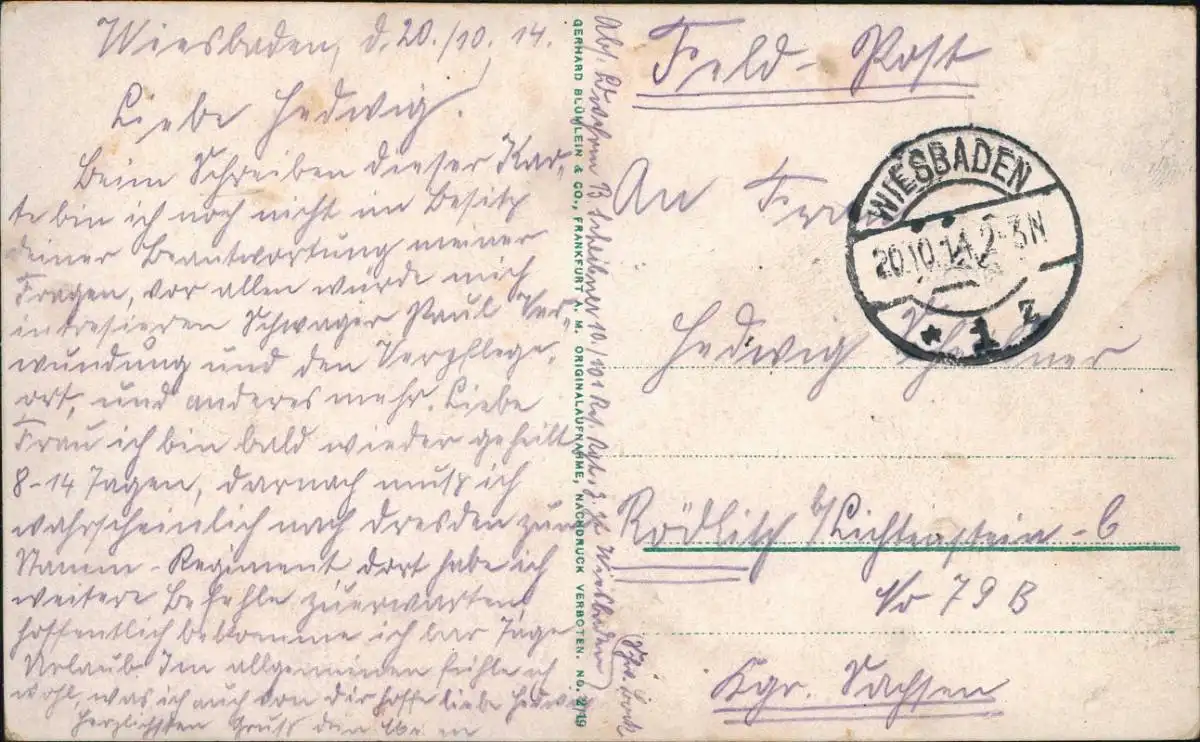 Wiesbaden, d. 20./10. 14.
Liebe Hedwig!
Beim Schreiben dieser Kar-
te bin ich noch nicht im Besitz
deiner Beantwortung meiner
Fragen, vor allen würde mich
intresieren Schwager Paul Ver-
wundung und den Verpflege-
ort, und anderes mehr. Liebe
Frau ich bin bald wieder geheilt
8-14 Tagen, darnach muß ich
wahrscheinlich nach Dresden zum
Stamm-Regiment dort habe ich
weitere Befehle zuerwarten
hoffentlich bekomme ich par Tage
Urlaub. Im allgemeinen fühle ich
wohl, was ich auch von dir hoffe liebe Hedwig
Herzlichsten Gruß
GERHARD BLÜMLEIN & CO., FRANKFURT A. M. ORIGINALAUFNAHME, NACHDRUCK VERBOTEN. NO. 2/19
Abs. 10./101 Res. Rgt. z. Zt. Wiesbaden
Feld-Post
An Frau
Hedwig
Rödlitz b/Lichtenstein-C
No 79 B
Kgr. Sachsen
WIESBADEN
20.10.14.2-3N
* 1 z